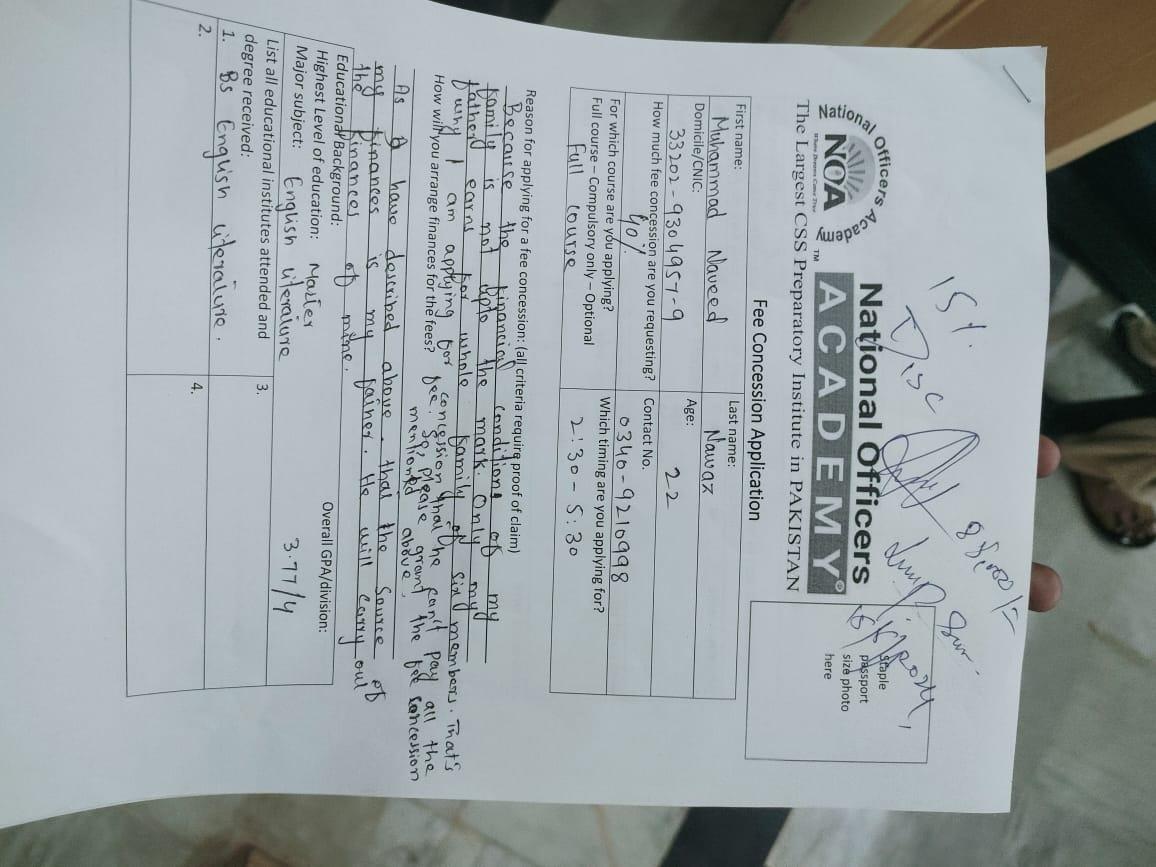 15%
Disc
88,000/=
Lump Sum
National Officers Academy
NOA
Where Dreams Come True
TM
National Officers
ACADEMY®
The Largest CSS Preparatory Institute in PAKISTAN
staple
passport
size photo
here
Fee Concession Application
First name:
Muhammad Naveed
Last name:
Nawaz
Domicile/CNIC:
33202-9304957-9
Age:
22
How much fee concession are you requesting?
40%
Contact No.
0340-9210998
For which course are you applying?
Full course – Compulsory only – Optional
Full course
Which timing are you applying for?
2:30 - 5:30
Reason for applying for a fee concession: (all criteria require proof of claim)
Because the financial conditions of my
family is not upto the mark. Only my
father earns for whole family of six members. That's
why I am applying for concession that he can't pay all the
fee. So, please grant the fee concession
mentioned above.
How will you arrange finances for the fees?
As I have described above that the source of
my finances is my father. He will carry out
the finances of mine.
Educational Background:
Highest Level of education: Master
Major subject: English literature
Overall GPA/division:
3.77/4
List all educational institutes attended and
degree received:
1. Bs English literature.
2.
3.
4.